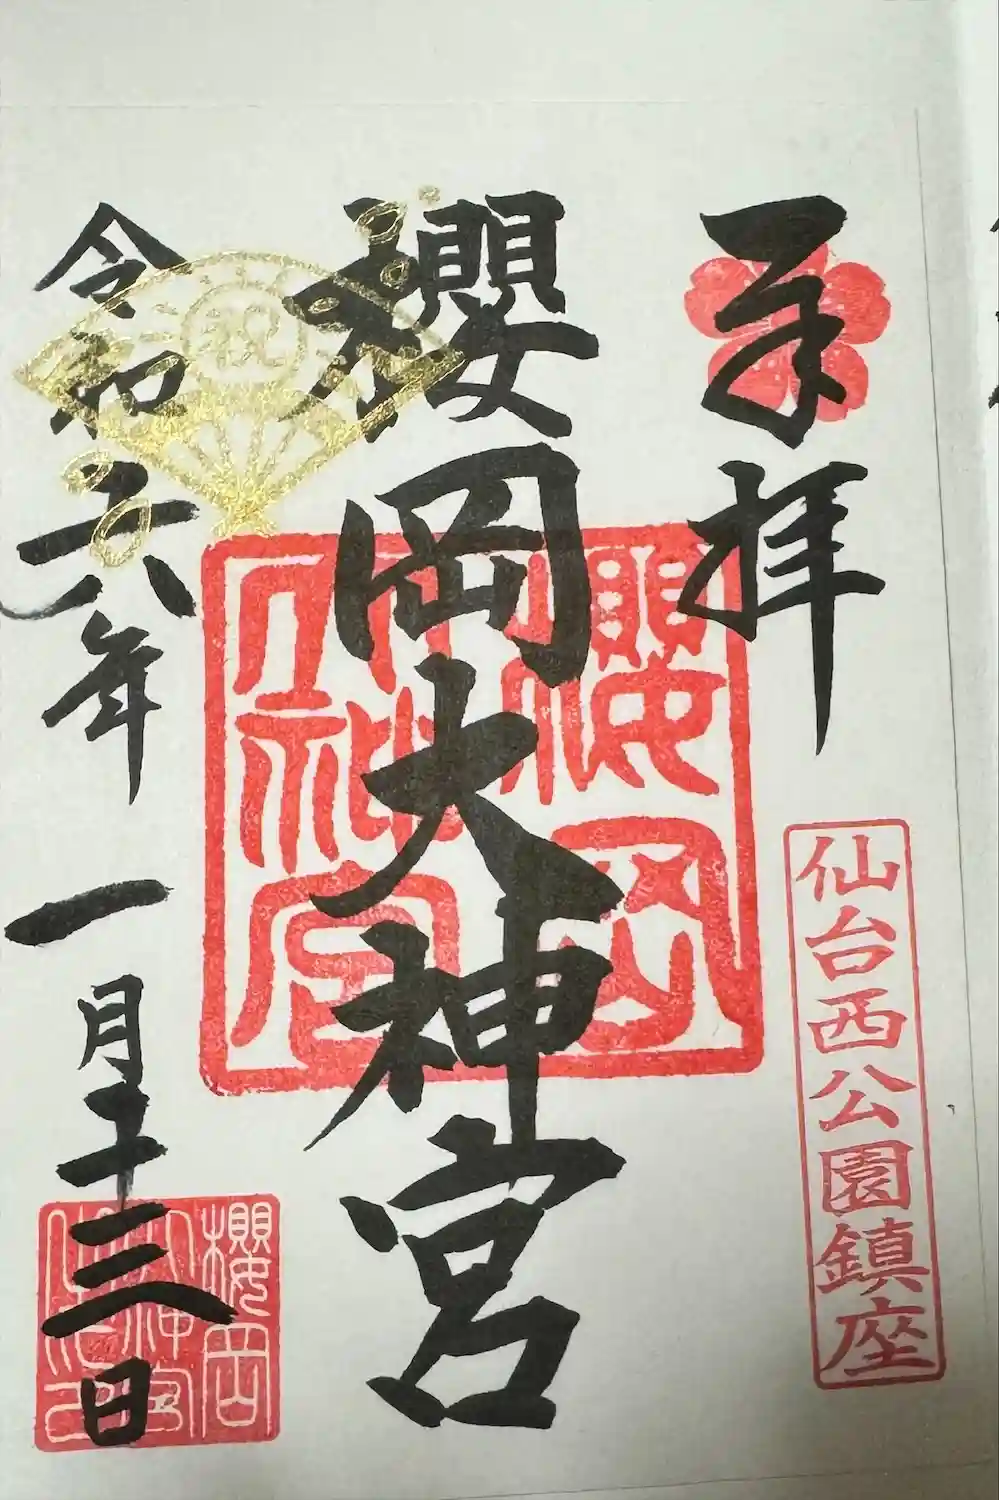 奉拝
仙台西公園鎮座
櫻岡大神宮
櫻岡
大神宮
祝
令和六年 一月十三日
櫻岡